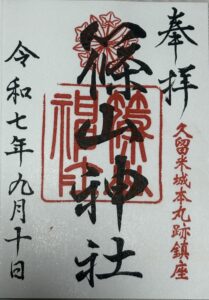 奉拝
久留米城本丸跡鎮座
篠山神社
令和七年九月十日